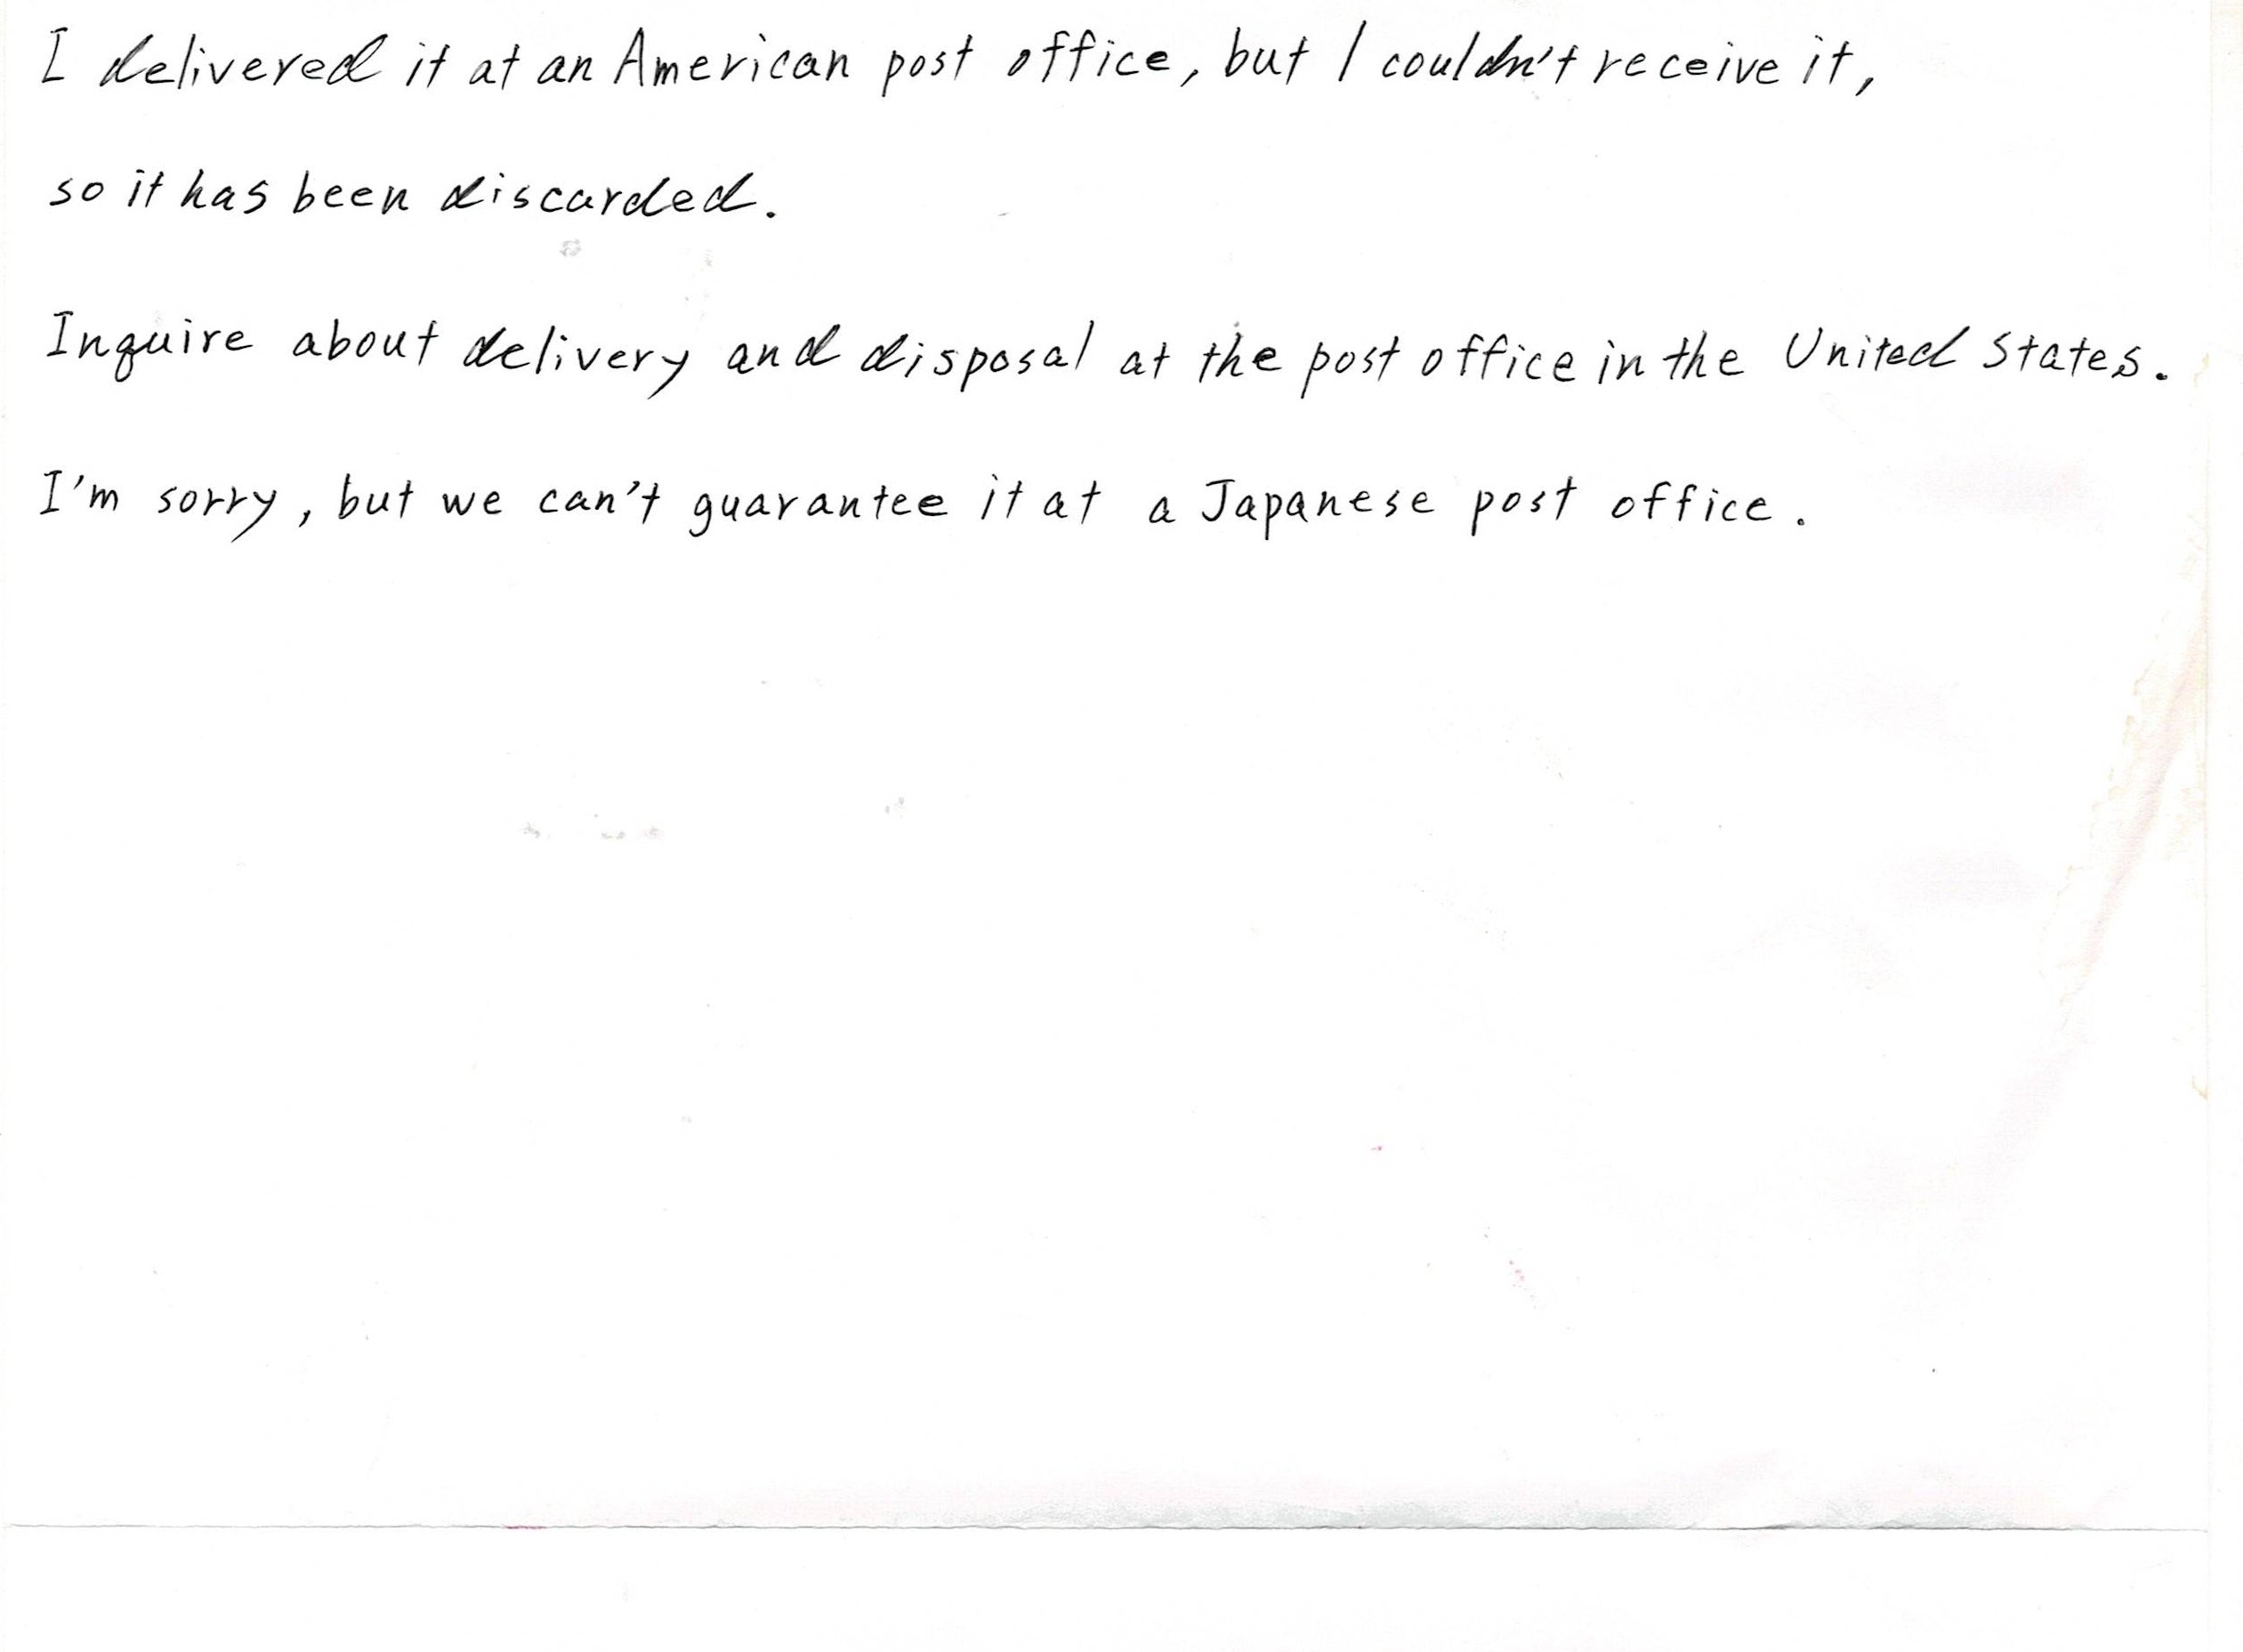 I delivered it at an American post office, but I couldn't receive it,
so it has been discarded.
Inquire about delivery and disposal at the post office in the United States.
I'm sorry, but we can't guarantee it at a Japanese post office.